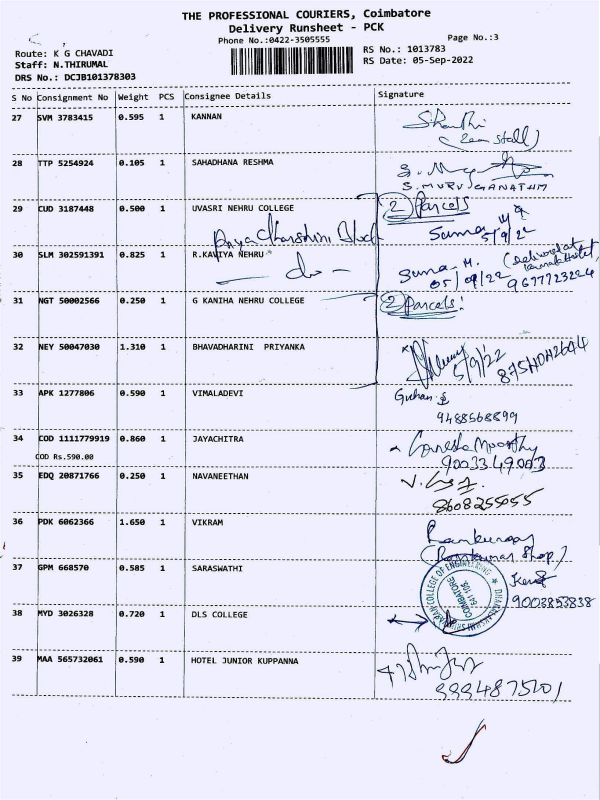 THE PROFESSIONAL COURIERS, Coimbatore
Delivery Runsheet - PCK
Phone No.:0422-3505555
Page No.:3
Route: K G CHAVADI
RS No.: 1013783
Staff: N.THIRUMAL
RS Date: 05-Sep-2022
DRS No.: DCJB101378303
S No Consignment No Weight PCS Consignee Details Signature
27 SVM 3783415 0.595 1 KANNAN
28 TTP 5254924 0.105 1 SAHADHANA RESHMA
S. MURUGANATHM
29 CUD 3187448 0.500 1 UVASRI NEHRU COLLEGE 2 Parcels
Priya dharshini Block Suma 5/9/22
30 SLM 302591391 0.825 1 R.KAVIYA NEHRU Suma. M. (delivered at
— do — 05/09/22 9677723224
31 NGT 50002566 0.250 1 G KANIHA NEHRU COLLEGE 2 Parcels!
32 NEY 50047030 1.310 1 BHAVADHARINI PRIYANKA 5/9/22
33 APK 1277806 0.590 1 VIMALADEVI Guhan
9488568899
34 COD 1111779919 0.860 1 JAYACHITRA
COD Rs.590.00 9003349003
35 EDQ 20871766 0.250 1 NAVANEETHAN
8608255055
36 PDK 6062366 1.650 1 VIKRAM Ramkumar
(Ramkumar Shop)
37 GPM 668570 0.585 1 SARASWATHI
9003853838
38 MYD 3026328 0.720 1 DLS COLLEGE
39 MAA 565732061 0.590 1 HOTEL JUNIOR KUPPANNA